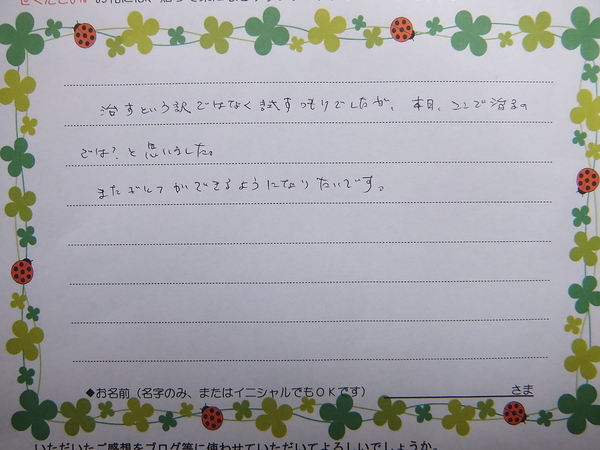 治すという訳ではなく試すつもりでしたが、本日、ここで治るの
では?と思いました。
またゴルフができるようになりたいです。
◆お名前(名字のみ、またはイニシャルでもOKです) さま
いただいたご感想をブログ等に使わせていただいてよろしいでしょうか。